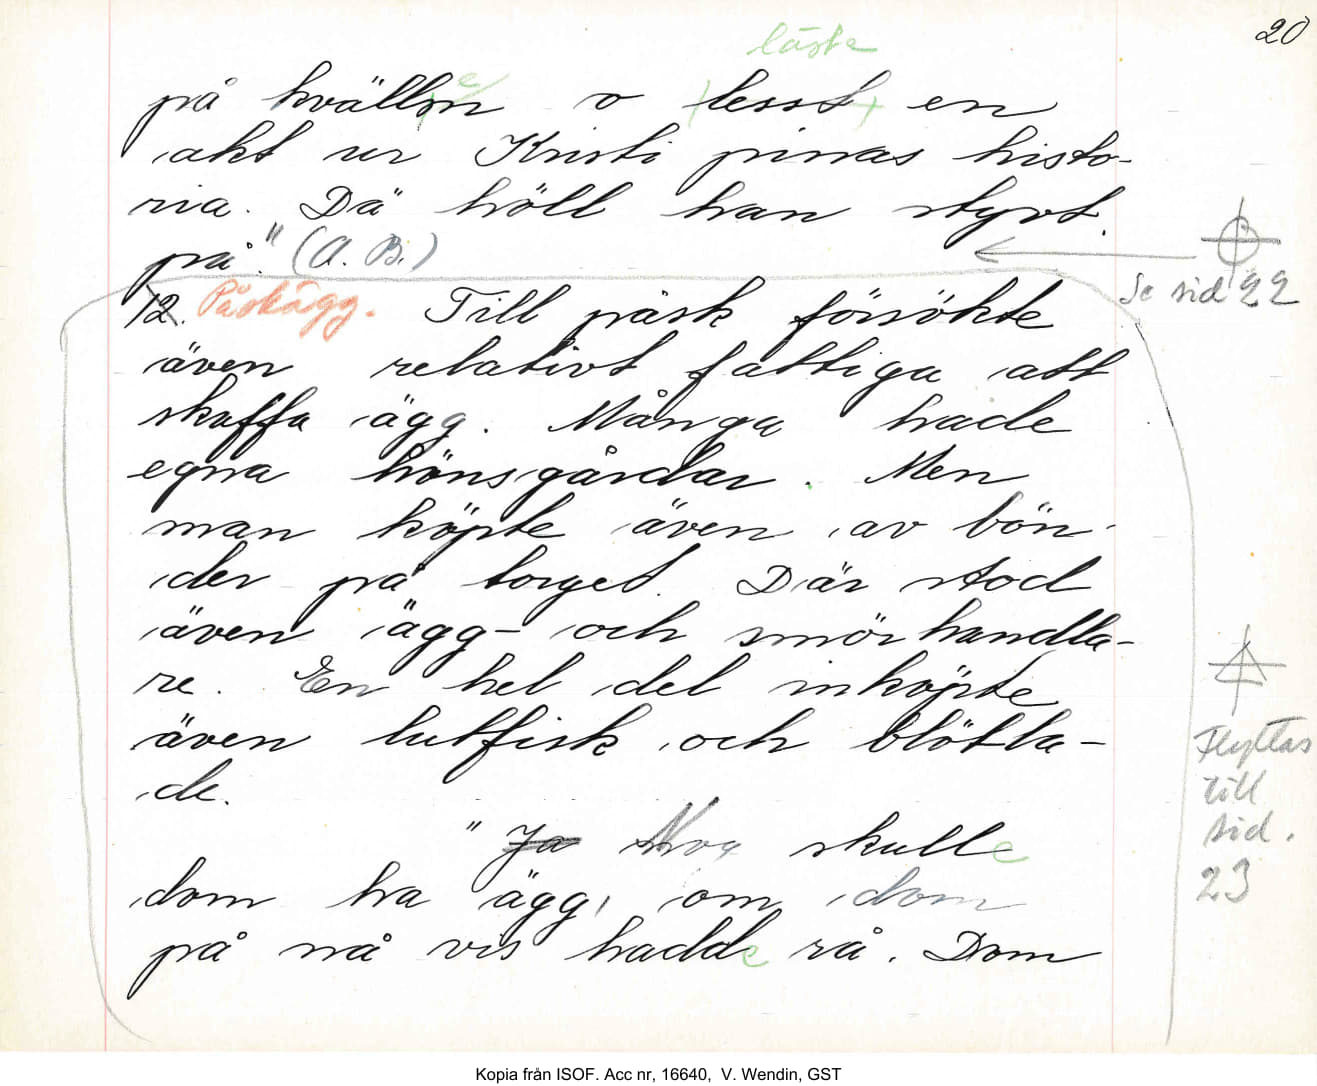 20
läste
på kvällen o lesst en
akt ur Kristi pinas histo-
ria. Dä höll han styvt
på." (A. B.)
Se sid 22
12. Påskägg. Till påsk försökte
även relativt fattiga att
skaffa ägg. Många hade
egna hönsgårdar. Men
man köpte även av bön-
der på torget. Där stod
även ägg- och smörhandla-
re. En hel del inköpte
även lutfisk och blötla-
de.
Flyttas
till
sid.
23
" Ja skulle
dom ha ägg, om dom
på nå vis hadde rå. Dom
Kopia från ISOF. Acc nr, 16640, V. Wendin, GST